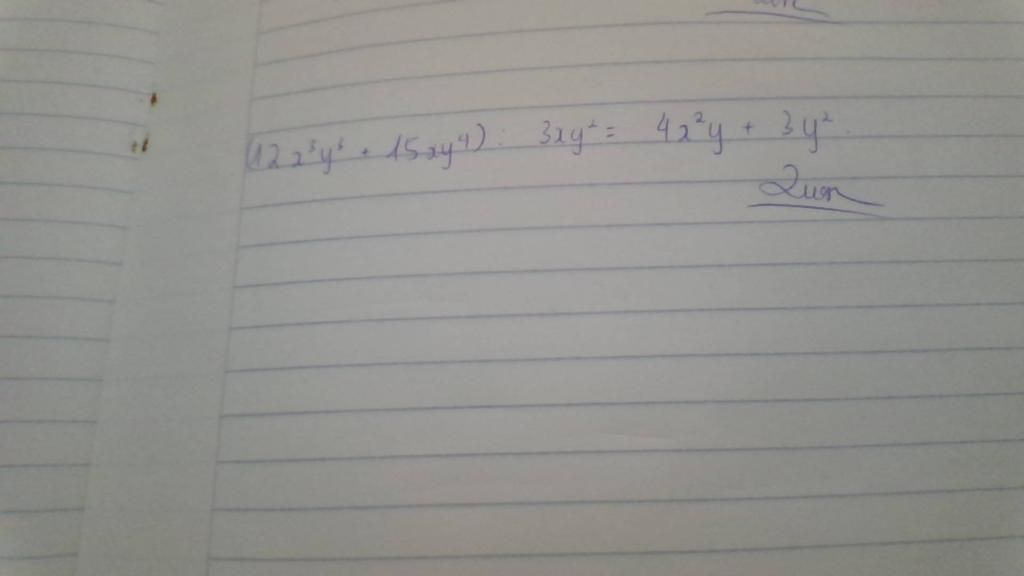 (12x³y³ + 15xy⁴) : 3xy² = 4x²y + 3y².